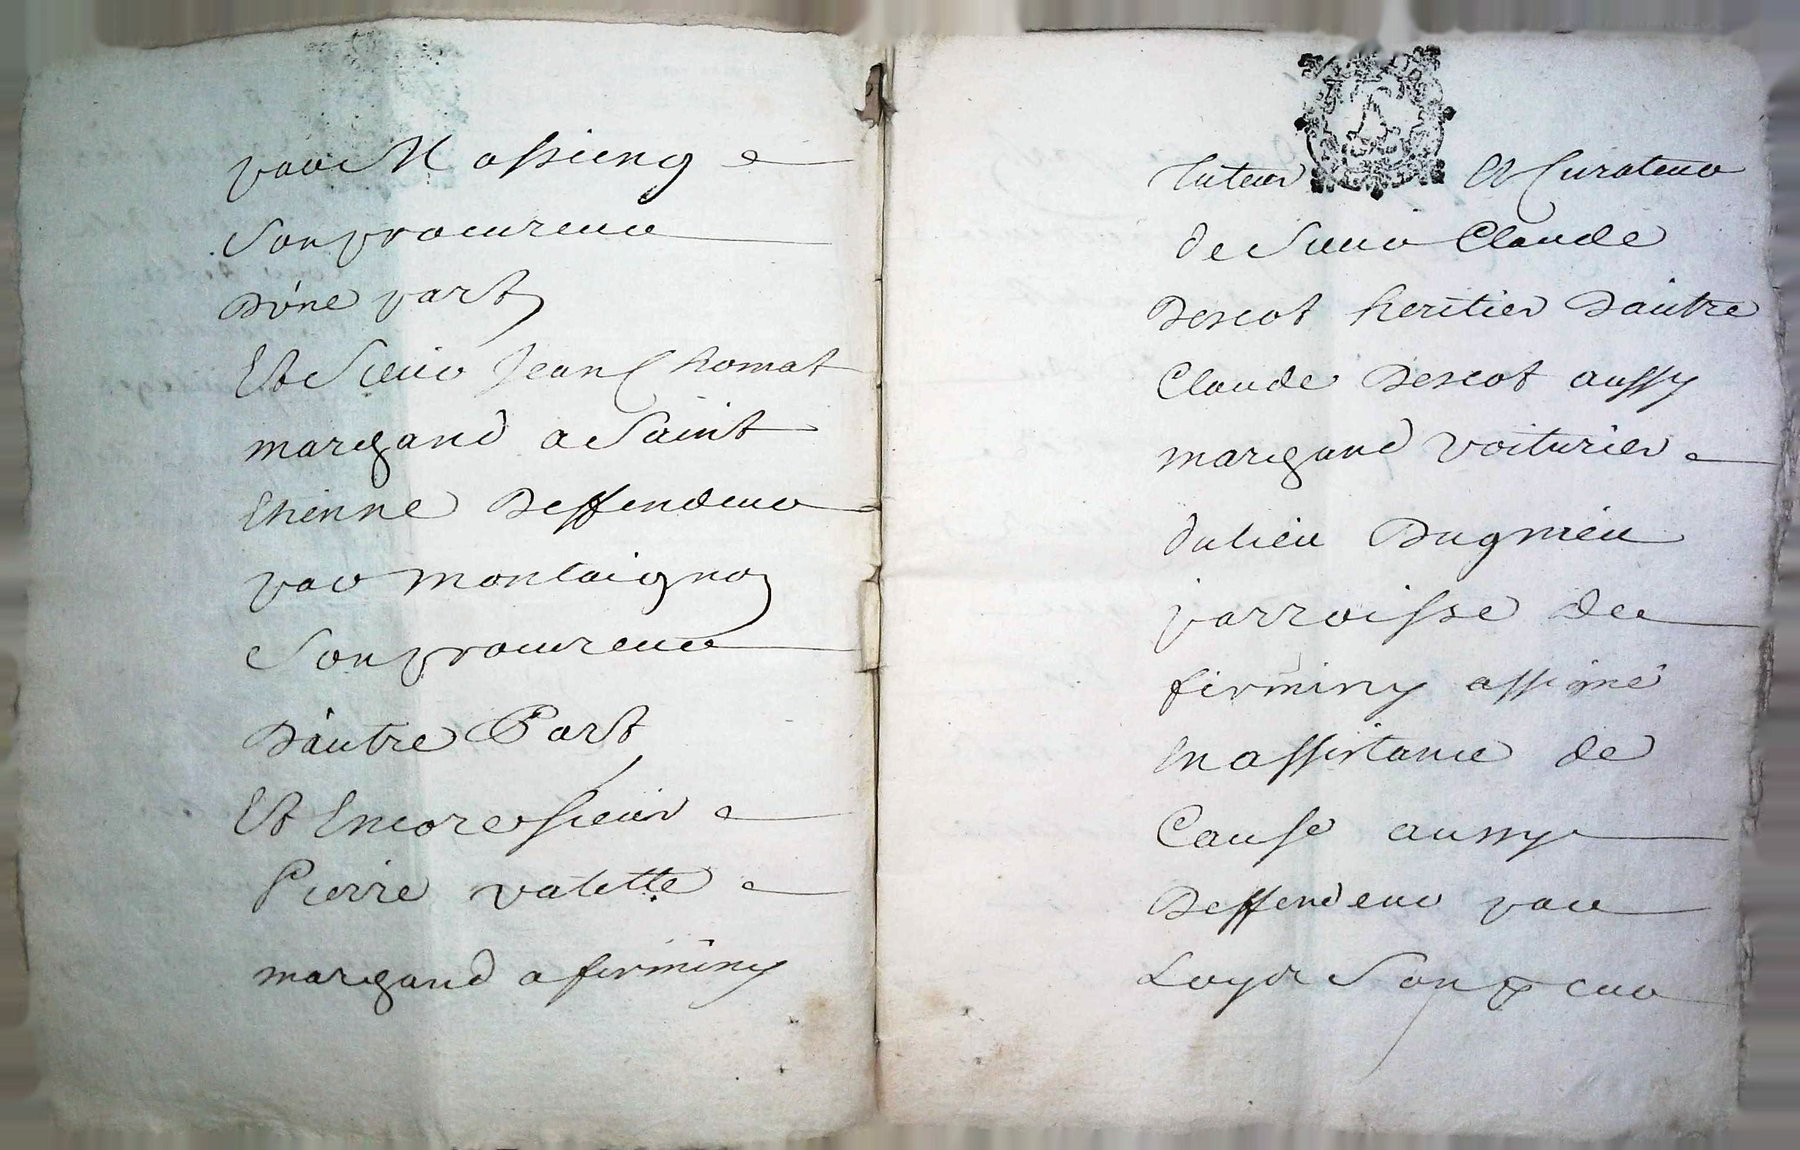 par Massieng
Son procureur
D'une part
Et Sieur Jean Chomat
margand a Saint
Etienne Deffendeur
par montaigno
Son procureur
D'autre Part
Et Encore sieur
Pierre valette
margand a firminy
tuteur Et Curateur
de Sieur Claude
Descot heritier D'autre
Claude Descot aussy
margand voiturier
du lieu Dugnieu
parroisse de
firminy assigné
En assistance de
Cause aussy
Deffendeur par
Loyr Son pcur